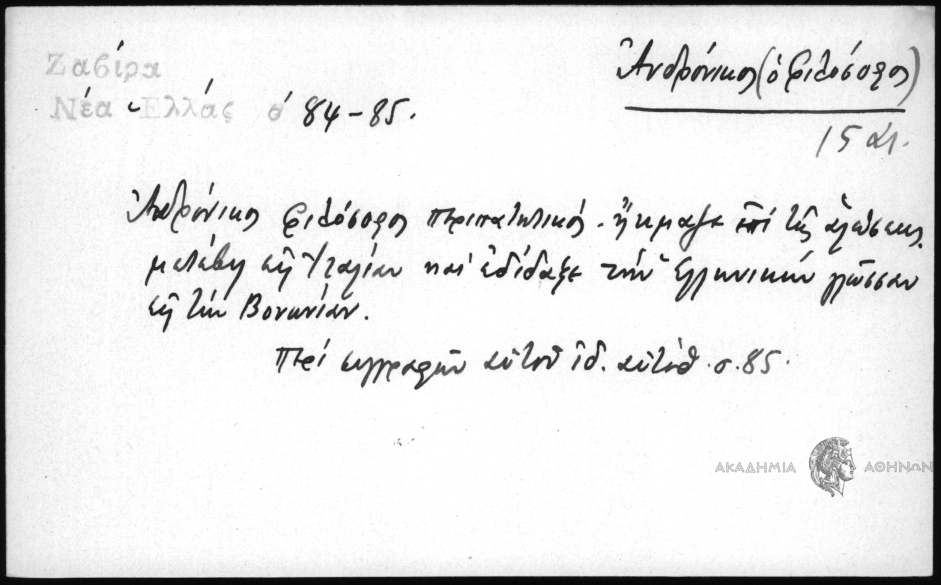 Ζαβίρα
Νέα Ἑλλάς σ 84-85.
Ἀνδρόνικος (ὁ Φιλόσοφος)
15 αἰ.
Ἀνδρόνικος Φιλόσοφος περιπατητικός. ἤκμαζε ἐπὶ τῆς ἁλώσεως.
μετέβη εἰς Ἰταλίαν καὶ ἐδίδαξε τὴν Ἑλληνικὴν γλῶσσαν
εἰς τὴν Βονωνίαν.
Περὶ συγγραφῶν αὐτοῦ ἰδ. αὐτόθ. σ. 85.
ΑΚΑΔΗΜΙΑ ΑΘΗΝΩΝ